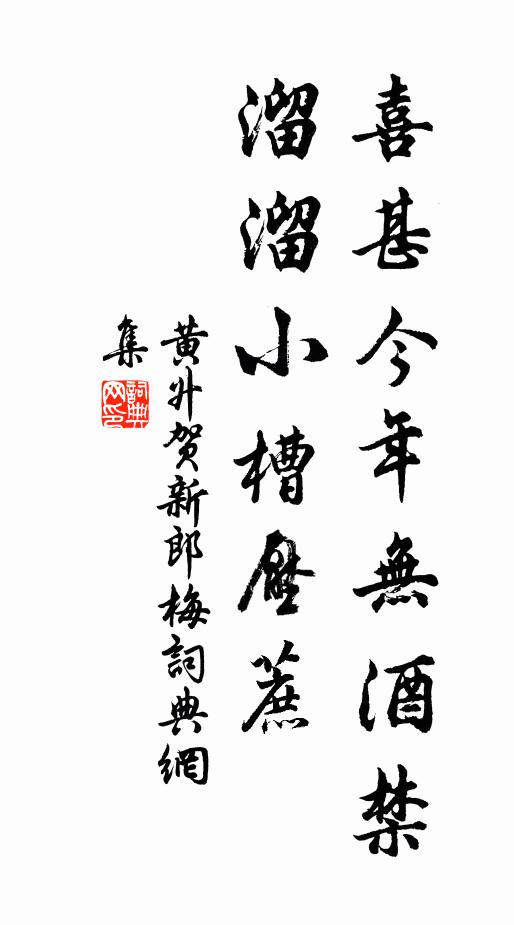 喜甚今年無酒禁
溜溜小槽壓蔗
黄升贺新郎梅詞典網
集
詞典网印